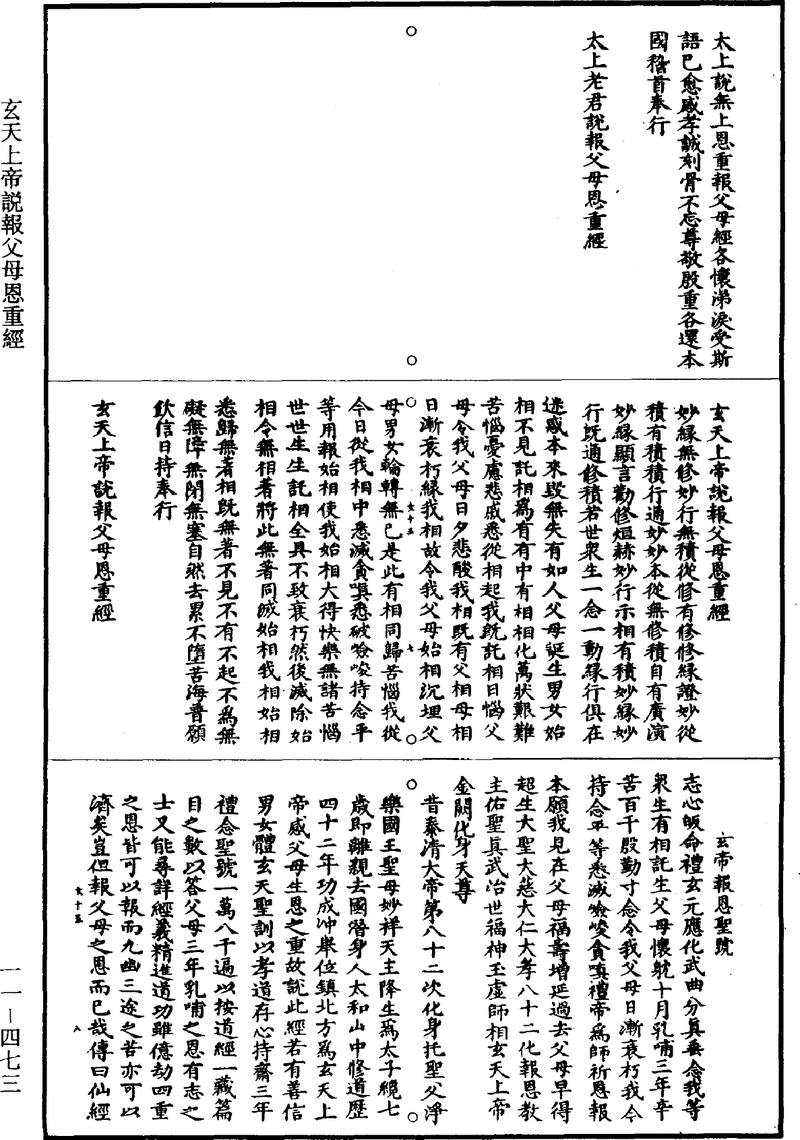 玄天上帝説報父母恩重經
一一－四七三
太上說無上恩重報父母經各懷涕淚受斯
語已愈感孝誠刻骨不忘尊敬殷重各還本
國稽首奉行
太上老君說報父母恩重經
玄天上帝說報父母恩重經
妙緣無修妙行無積從修有修修緣證妙從
積有積積行通妙妙本從無修積自有廣演
妙緣顯言勸修烜赫妙行示相有積妙緣妙
行既通修積若世衆生一念一動緣行俱在
迷惑本來毀無失有如人父母誕生男女始
相不見託相爲有有中有相相化萬狀艱難
苦惱憂慮悲戚悉從相起我既託相日惱父
母令我父母日夕悲酸我相既有父相母相
日漸衰朽緣我相故令我父母始相沉埋父
母男女輪轉無已是此有相同歸苦惱我從
今日從我相中悉滅貪嗔悉破嶮峻持念平
等用報始相使我始相大得快樂無諸苦惱
世世生生託相全具不致衰朽然後滅除始
相令無相著將此無著同滅始相我相始相
悉歸無著相既無著不見不有不起不爲無
礙無障無閉無塞自然去累不墮苦海普願
欽信日持奉行
玄天上帝說報父母恩重經
女十五
七
玄帝報恩聖號
志心皈命禮玄元應化武曲分真垂念我等
衆生有相託生父母懷躭十月乳哺三年辛
苦百千殷勤寸念令我父母日漸衰朽我今
持念平等悉滅嶮峻貪嗔禮帝爲師祈恩報
本願我見在父母福壽增延過去父母早得
超生大聖大慈大仁大孝八十二化報恩教
主佑聖真武治世福神玉虛師相玄天上帝
金闕化身天尊
昔泰清大帝第八十二次化身托聖父淨
樂國王聖母妙祥天主降生爲太子纔七
歲即離親去國潛身入太和山中修道歷
四十二年功成沖舉位鎮北方爲玄天上
帝感父母生恩之重故說此經若有善信
男女體玄天聖訓以孝道存心持齋三年
禮念聖號一萬八千遍以按道經一藏篇
目之數以答父母三年乳哺之恩有志之
士又能尋詳經義精進道功雖億劫四重
之恩皆可以報而九幽三途之苦亦可以
濟矣豈但報父母之恩而已哉傳曰仙經
女十五
八